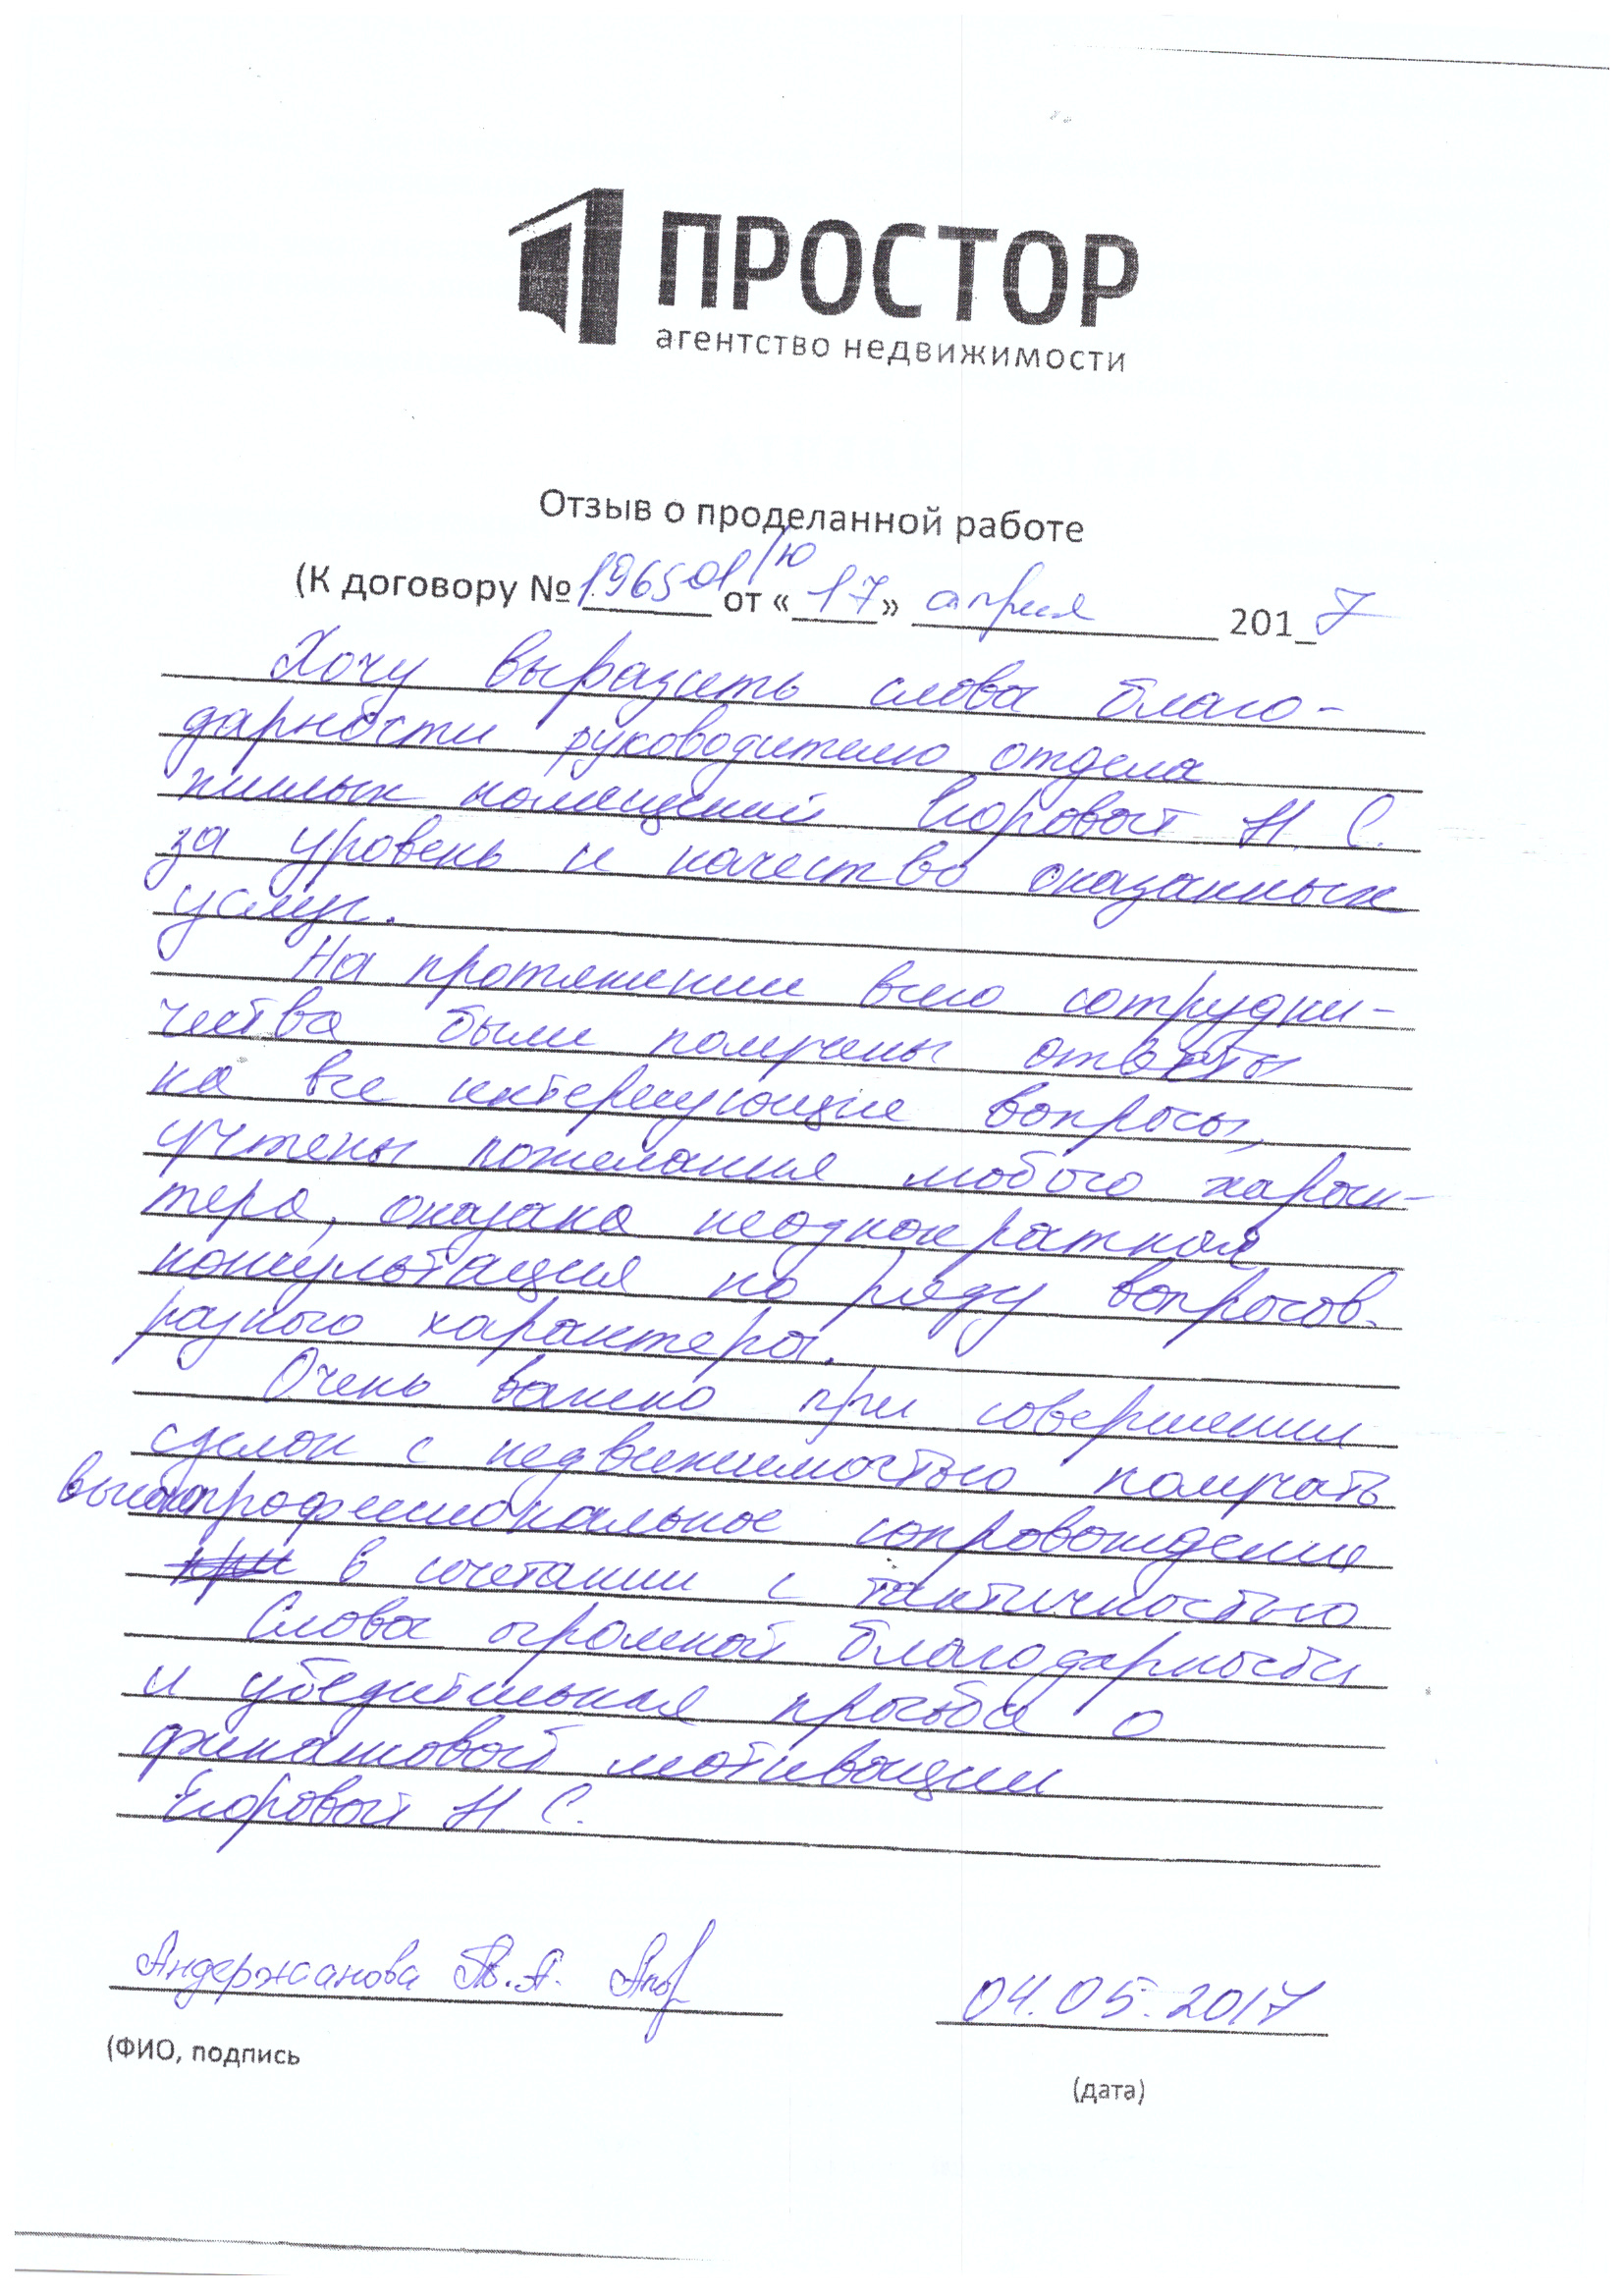 ПРОСТОР
агентство недвижимости
Отзыв о проделанной работе
(К договору № 196501/ю от « 17 » апреля 2017
Хочу выразить слова благо-
дарности руководителю отдела
жилых помещений Егоровой Н. С.
за уровень и качество оказанных
услуг.
На протяжении всего сотрудни-
чества были получены ответы
на все интересующие вопросы,
учтены пожелания любого харак-
тера, оказана неоднократная
консультация по ряду вопросов
разного характера.
Очень важно при совершении
сделок с недвижимостью получать
высокопрофессиональное сопровождение
в сочетании с тактичностью
Слова огромной благодарности
и убедительная просьба о
финансовой мотивации
Егоровой Н. С.
Андержанова Т.А.
04.05.2017
(ФИО, подпись
(дата)